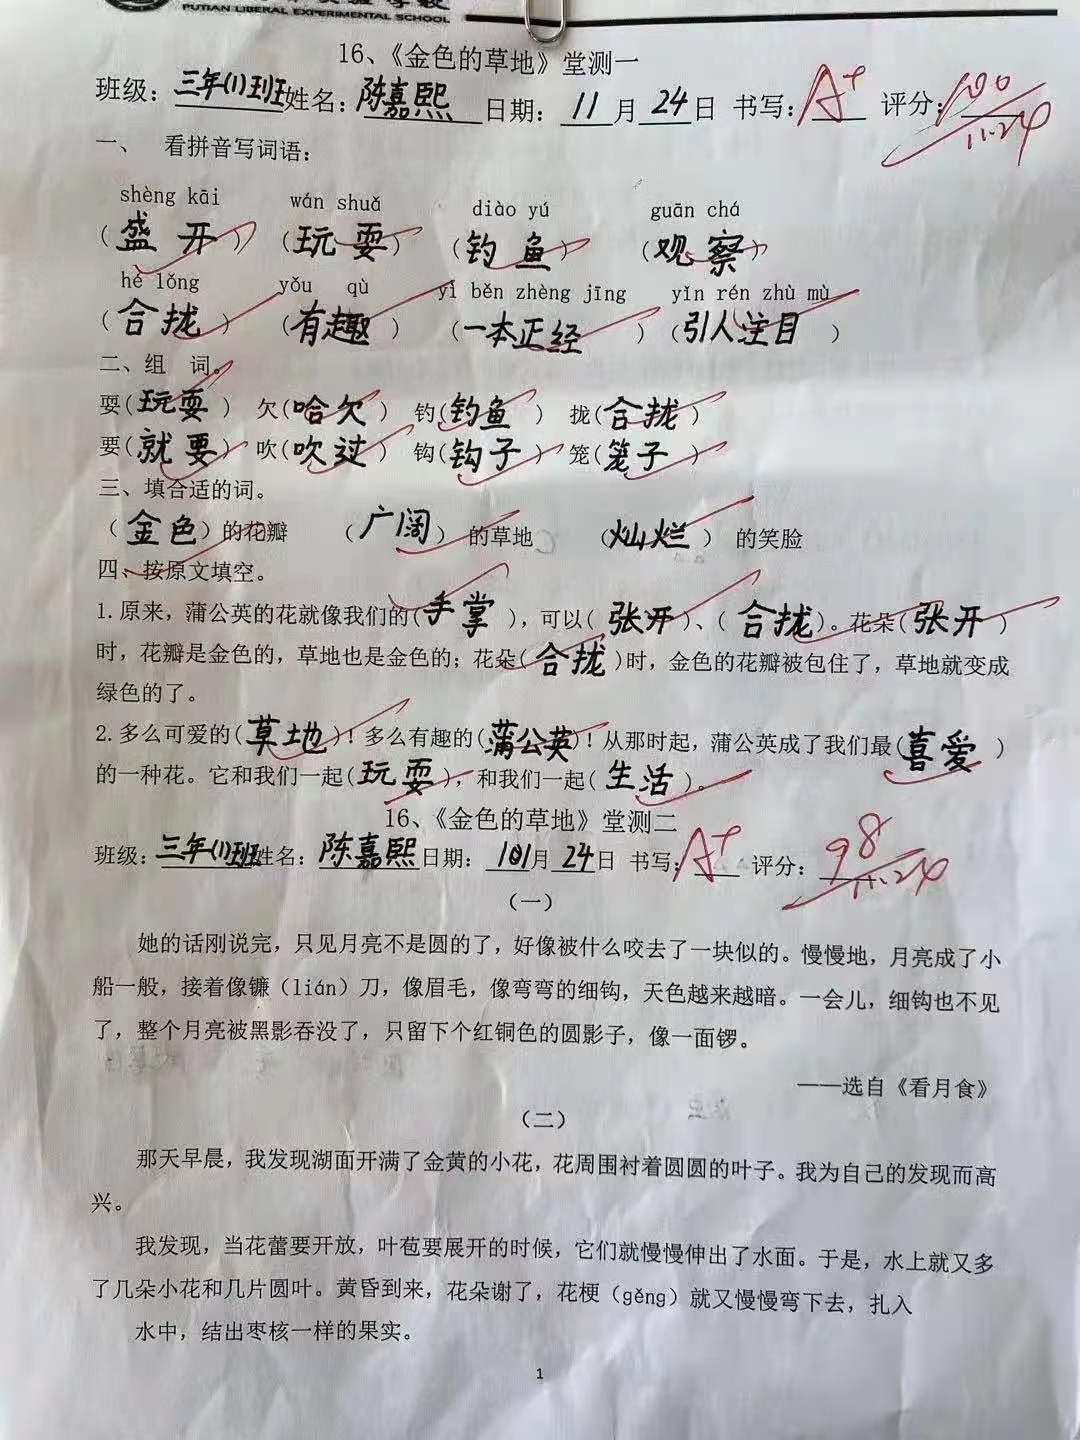 PUTIAN LIBERAL EXPERIMENTAL SCHOOL
16、《金色的草地》堂测一
班级：三年(1)班 姓名：陈嘉熙 日期：11月24日 书写：A+ 评分：100
11.24
一、 看拼音写词语：
shèng kāi wán shuǎ diào yú guān chá
（盛开）（玩耍）（钓鱼）（观察）
hé lǒng yǒu qù yì běn zhèng jīng yǐn rén zhù mù
（合拢）（有趣）（一本正经）（引人注目）
二、组 词。
耍（玩耍） 欠（哈欠） 钓（钓鱼） 拢（合拢）
要（就要） 吹（吹过） 钩（钩子） 笼（笼子）
三、填合适的词。
（金色）的花瓣 （广阔）的草地 （灿烂）的笑脸
四、按原文填空。
1.原来，蒲公英的花就像我们的（手掌），可以（张开）、（合拢）。花朵（张开）
时，花瓣是金色的，草地也是金色的；花朵（合拢）时，金色的花瓣被包住了，草地就变成
绿色的了。
2.多么可爱的（草地）！多么有趣的（蒲公英）！从那时起，蒲公英成了我们最（喜爱）
的一种花。它和我们一起（玩耍），和我们一起（生活）。
16、《金色的草地》堂测二
班级：三年(1)班 姓名：陈嘉熙 日期：月24日 书写：A+ 评分：98
11.24
（一）
她的话刚说完，只见月亮不是圆的了，好像被什么咬去了一块似的。慢慢地，月亮成了小
船一般，接着像镰（lián）刀，像眉毛，像弯弯的细钩，天色越来越暗。一会儿，细钩也不见
了，整个月亮被黑影吞没了，只留下个红铜色的圆影子，像一面锣。
——选自《看月食》
（二）
那天早晨，我发现湖面开满了金黄的小花，花周围衬着圆圆的叶子。我为自己的发现而高
兴。
我发现，当花蕾要开放，叶苞要展开的时候，它们就慢慢伸出了水面。于是，水上就又多
了几朵小花和几片圆叶。黄昏到来，花朵谢了，花梗（gěng）就又慢慢弯下去，扎入
水中，结出枣核一样的果实。
1